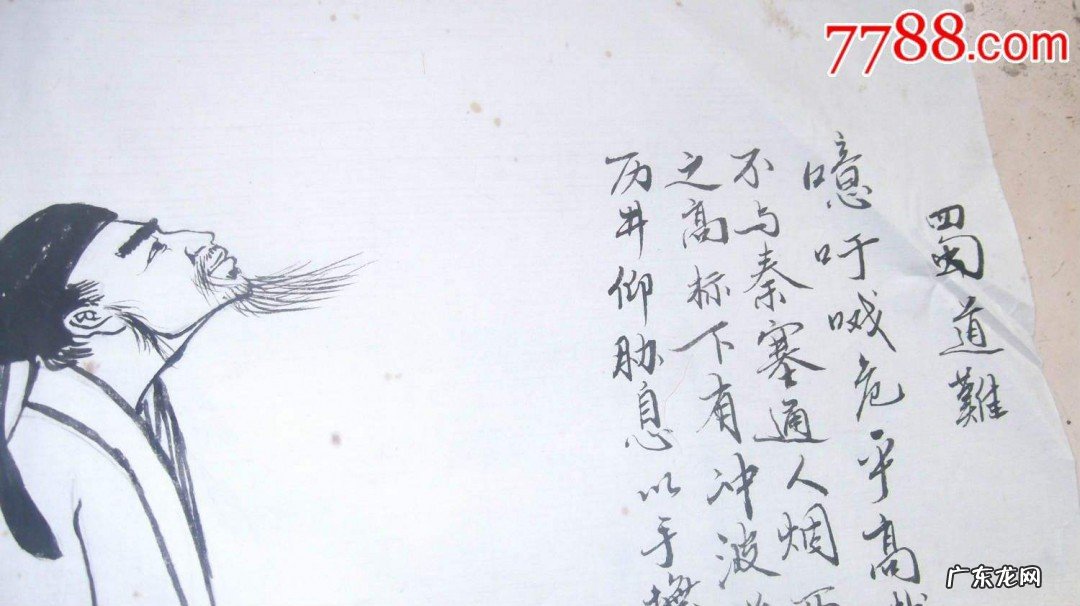 7788.com
蜀道難
噫吁嚱危乎高
不与秦塞通人烟西
之高标下有冲波
历井仰胁息以手
广东龙网